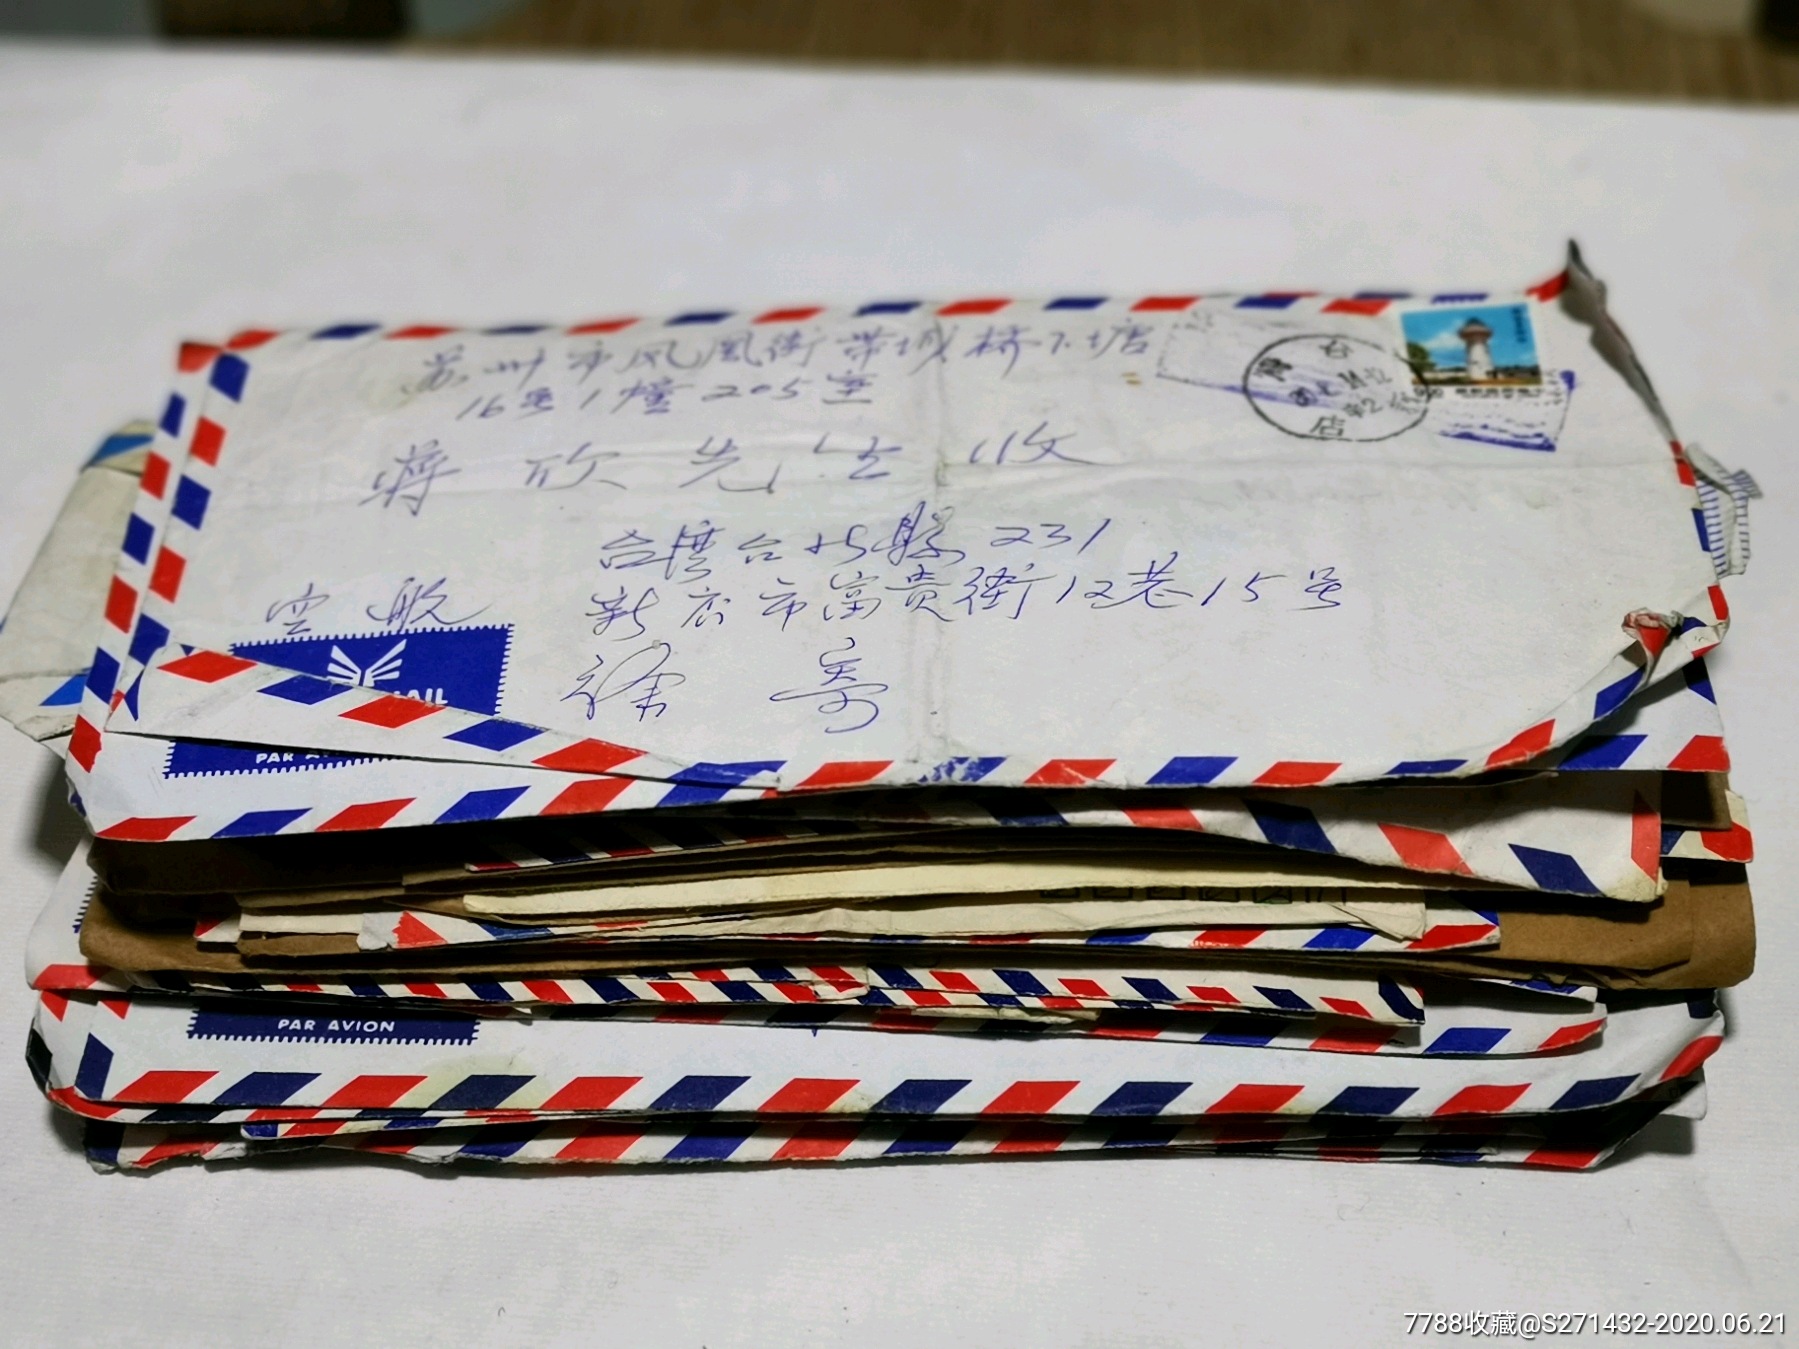 苏州市凤凰街带城桥下塘
16号1幢205室
蒋欣先生收
台湾台北縣231
新店市富贵街12巷15号
徐寄
空航
台
店
PAR
PAR AVION
7788收藏@S271432-2020.06.21